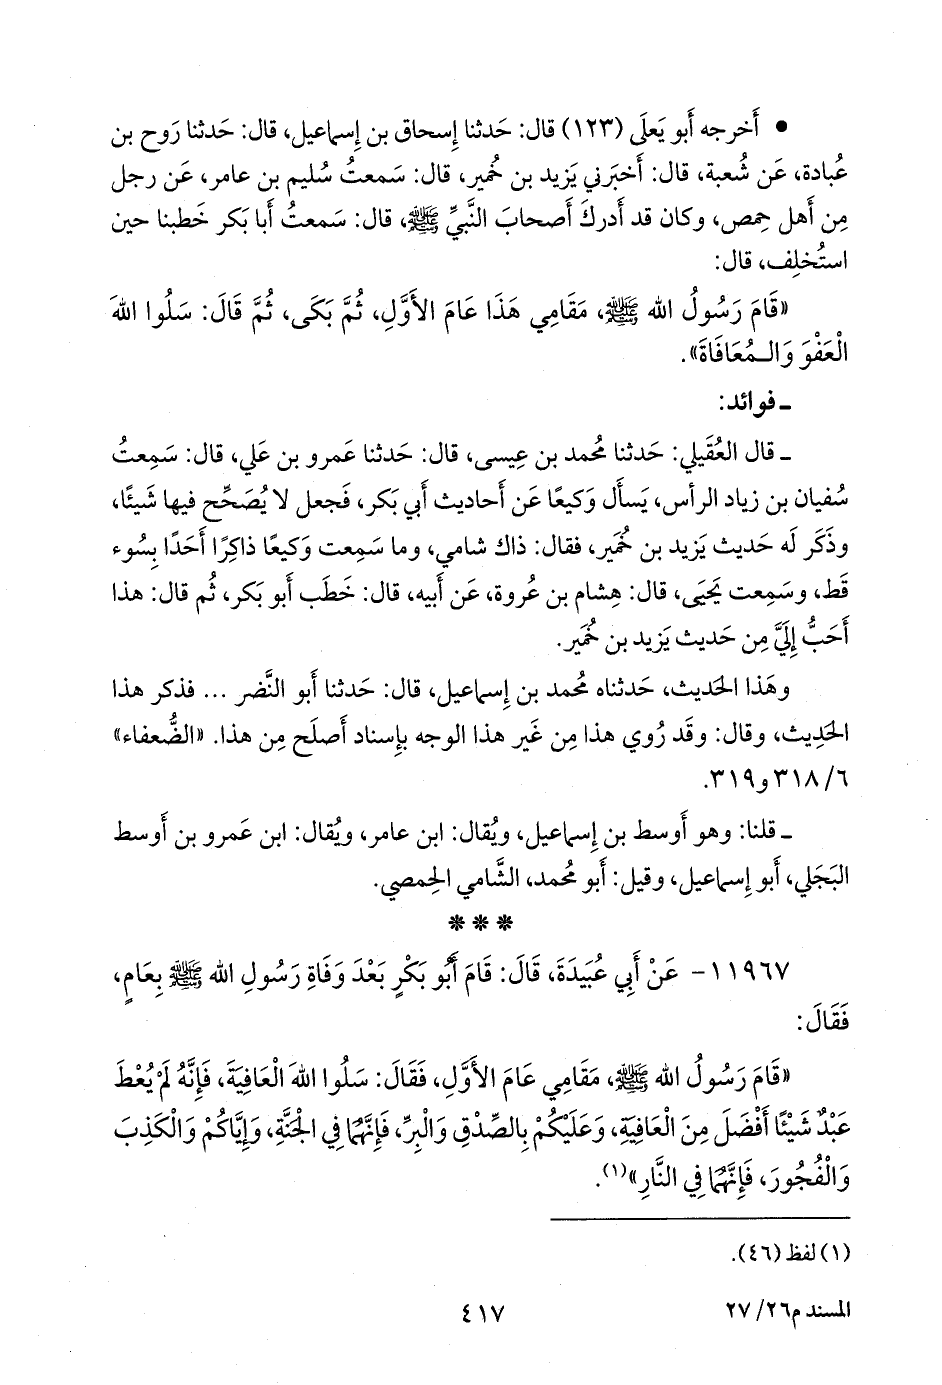 • أَخرجه أَبو يَعلَى (١٢٣) قال: حَدثنا إِسحاق بن إِسماعيل، قال: حَدثنا رَوح بن
عُبادة، عَن شُعبة، قال: أَخبَرني يَزيد بن خُمير، قال: سَمعتُ سُليم بن عامر، عَن رجل
مِن أَهل حِمص، وكان قد أَدركَ أَصحابَ النَّبيِّ ﷺ، قال: سَمعتُ أَبا بَكر خَطبنا حين
استُخلِف، قال:
«قَامَ رَسُولُ الله ﷺ، مَقَامِي هَذَا عَامَ الأَوَّلِ، ثُمَّ بَكَى، ثُمَّ قَالَ: سَلُوا اللهَ
الْعَفْوَ وَالـمُعَافَاةَ».
ـ فوائد:
ـ قال العُقَيلي: حَدثنا مُحمد بن عِيسى، قال: حَدثنا عَمرو بن عَلي، قال: سَمِعتُ
سُفيان بن زياد الرأس، يَسأَل وَكيعًا عَن أَحاديث أَبي بَكر، فَجعل لا يُصَحِّح فيها شَيئًا،
وذَكَر لَه حَديث يَزيد بن خُمَير، فقال: ذاك شامي، وما سَمِعت وَكيعًا ذاكِرًا أَحَدًا بِسُوء
قَط، وسَمِعت يَحيَى، قال: هِشام بن عُروة، عَن أَبيه، قال: خَطَب أَبو بَكر، ثُم قال: هذا
أَحَبُّ إِليَّ مِن حَديث يَزيد بن خُمَير.
وهَذا الحَديث، حَدثناه مُحمد بن إِسماعيل، قال: حَدثنا أَبو النَّضر ... فذكر هذا
الحَدِيث، وقال: وقَد رُوي هذا مِن غَير هذا الوجه بإِسناد أَصلَح مِن هذا. «الضُّعفاء»
٦/ ٣١٨ و٣١٩.
ـ قلنا: وهو أَوسط بن إِسماعيل، ويُقال: ابن عامر، ويُقال: ابن عَمرو بن أَوسط
البَجَلي، أَبو إِسماعيل، وقيل: أَبو مُحمد، الشَّامي الحِمصي.
* * *
١١٩٦٧- عَنْ أَبِي عُبَيدَةَ، قَالَ: قَامَ أَبُو بَكْرٍ بَعْدَ وَفَاةِ رَسُولِ الله ﷺ بِعَامٍ،
فَقَالَ:
«قَامَ رَسُولُ الله ﷺ، مَقَامِي عَامَ الأَوَّلِ، فَقَالَ: سَلُوا اللهَ الْعَافِيَةَ، فَإِنَّهُ لَمْ يُعْطَ
عَبْدٌ شَيْئًا أَفْضَلَ مِنَ الْعَافِيَةِ، وَعَلَيْكُمْ بِالصِّدْقِ وَالْبِرِّ، فَإِنَّهُمَا فِي الْجَنَّةِ، وَإِيَّاكُمْ وَالْكَذِبَ
وَالْفُجُورَ، فَإِنَّهُمَا فِي النَّارِ»(١).
(١) لفظ (٤٦).
المسند م٢٦/ ٢٧
٤١٧